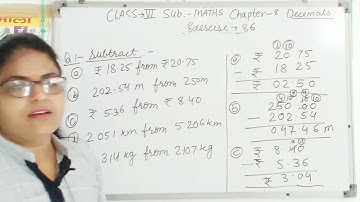 माला
CLASS→VI Sub.- MATHS Chapter-8 Decimals
Exercise→86
Q1- Subtract -
ⓐ ₹ 18.25 from ₹ 20.75
ⓑ 202.54 m from 250m
ⓒ ₹ 5.36 from ₹ 8.40
2.051 km from 5.206 km
3.14 kg from 2.107 kg
ⓐ ₹ 20.75
- ₹ 18.25
₹ 02.50
ⓑ 250.00
- 202.54
047.46 m
ⓒ ₹ 8.40
- ₹ 5.36
₹ 3.04